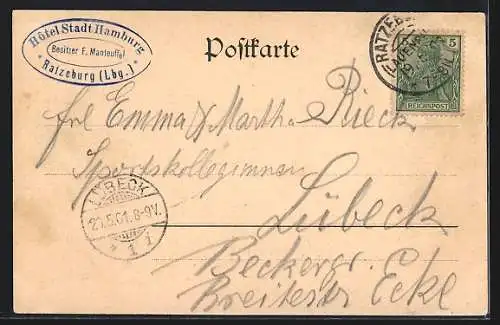 Hôtel Stadt Hamburg
Besitzer F. Manteuffel
Ratzeburg (Lbg.)
Postkarte
RATZEB
5
REICHSPOST
Frl Emma & Martha Rieck
Sportskolleginnen
LÜBECK
20.5.01. 8-9V.
* 1 i
Lübeck
Beckergr.
Breitestr Ecke